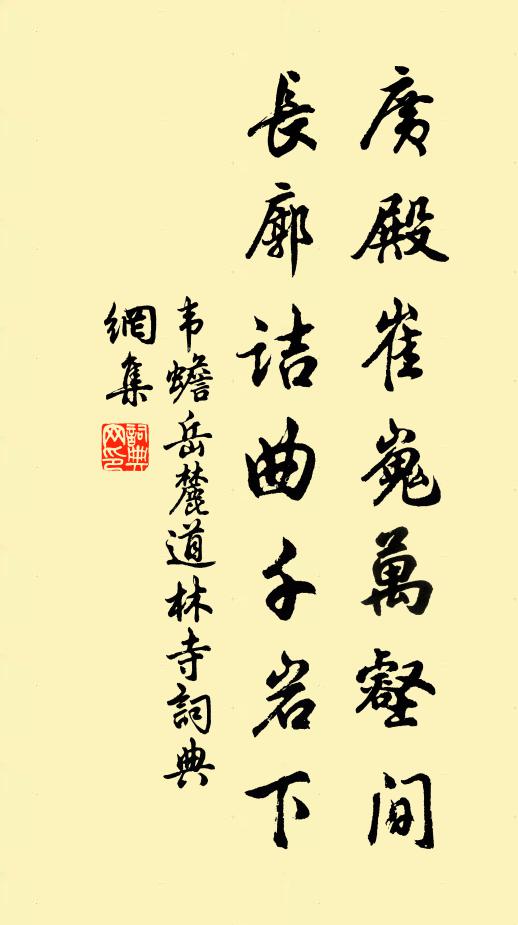 廣殿崔嵬萬壑间
長廊詰曲千岩下
韦蟾岳麓道林寺詞典
網集
詞典
网印